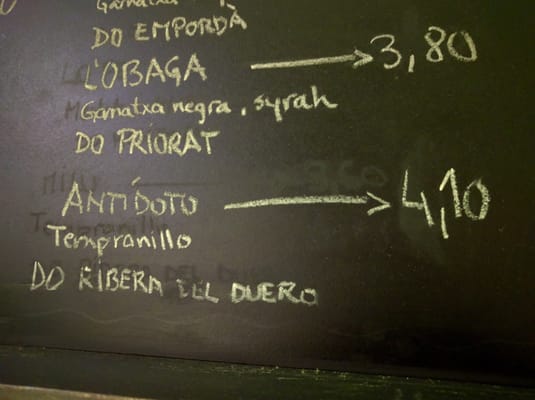 Garnatxa
DO EMPORDÀ
L'OBAGA → 3,80
Garnatxa negra, syrah
DO PRIORAT
ANTÍDOTO → 4,10
Tempranillo
DO RIBERA DEL DUERO